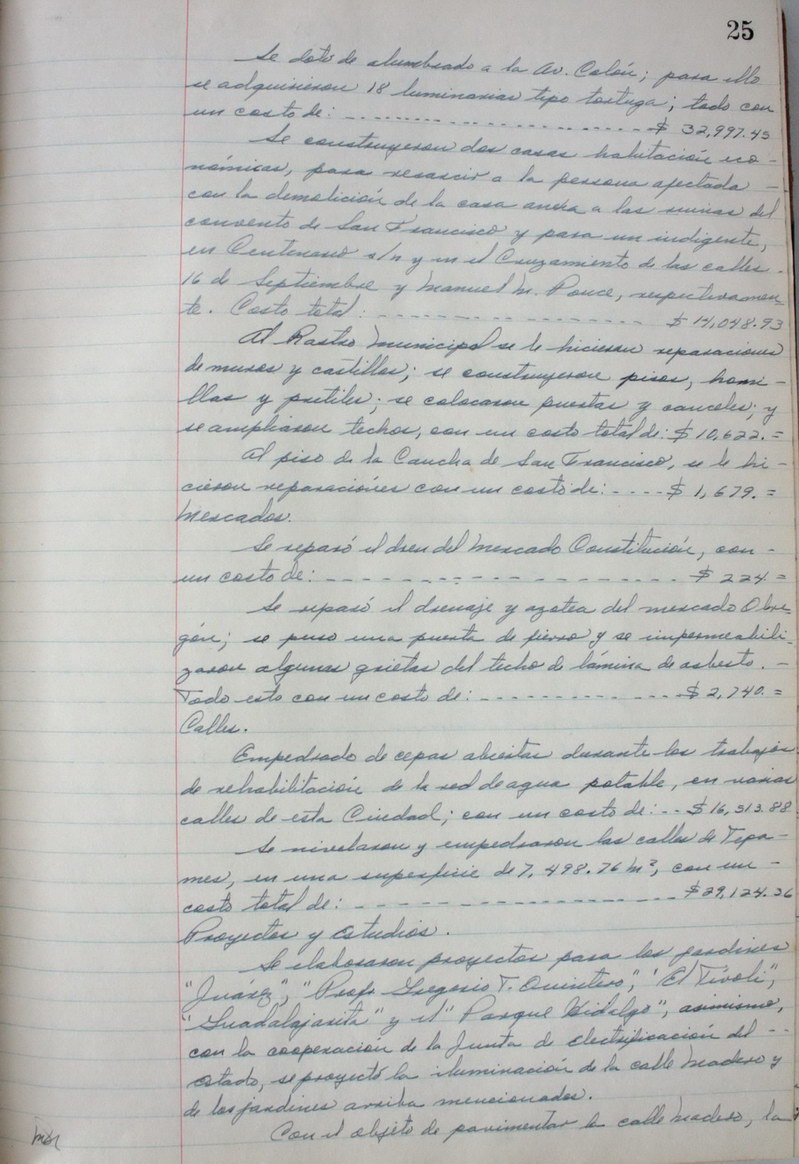 25
Se dotó de alumbrado a la Av. Colón; para ello
se adquirieron 18 luminarias tipo tortuga; todo con
un costo de: - - - - - - - - - - - - - - - - - - - - $ 32,997.45
Se construyeron dos casas habitación eco -
nómicas, para resarcir a la persona afectada -
con la demolición de la casa anexa a las ruinas del
convento de San Francisco y para un indigente,
en Centenario s/n y en el Cruzamiento de las calles -
16 de Septiembre y Manuel M. Ponce, respectivamen
te. Costo total: - - - - - - - - - - - - - - - - - $ 14,048.93
Al Rastro Municipal se le hicieron reparaciones
de muros y castillos; se construyeron pisos, horni -
llas y pretiles; se colocaron puertas y canceles; y
se ampliaron techos, con un costo total de: $ 10,622. =
Al piso de la Cancha de San Francisco, se le hi -
cieron reparaciones con un costo de: - - - - $ 1,679. =
Mercados.
Se reparó el dren del Mercado Constitución, con -
un costo de: - - - - - - - - - - - - - - - - - - $ 224 =
Se reparó el drenaje y azotea del mercado Obre-
gón; se puso una puerta de fierro y se impermeabili-
zaron algunas grietas del techo de lámina de asbesto. -
Todo esto con un costo de: - - - - - - - - - - - - $ 2,740. =
Calles.
Empedrado de cepas abiertas durante los trabajos
de rehabilitación de la red de agua potable, en varias
calles de esta Ciudad; con un costo de: - - $ 16,313.88
Se nivelaron y empedraron las calles de Tepa -
mes, en una superficie de 7,498.76 m², con un -
costo total de: - - - - - - - - - - - - - - - - - - - $ 29,124.26
Proyectos y estudios.
Se elaboraron proyectos para los jardines
"Juárez", "Profr Gregorio T. Quintero", "El Tívoli",
"Guadalajarita" y el "Parque Hidalgo", asimismo,
con la cooperación de la Junta de Electrificación del - -
Estado, se proyectó la iluminación de la calle Madero y
de los jardines arriba mencionados.
Con el objeto de pavimentar la calle Madero, la